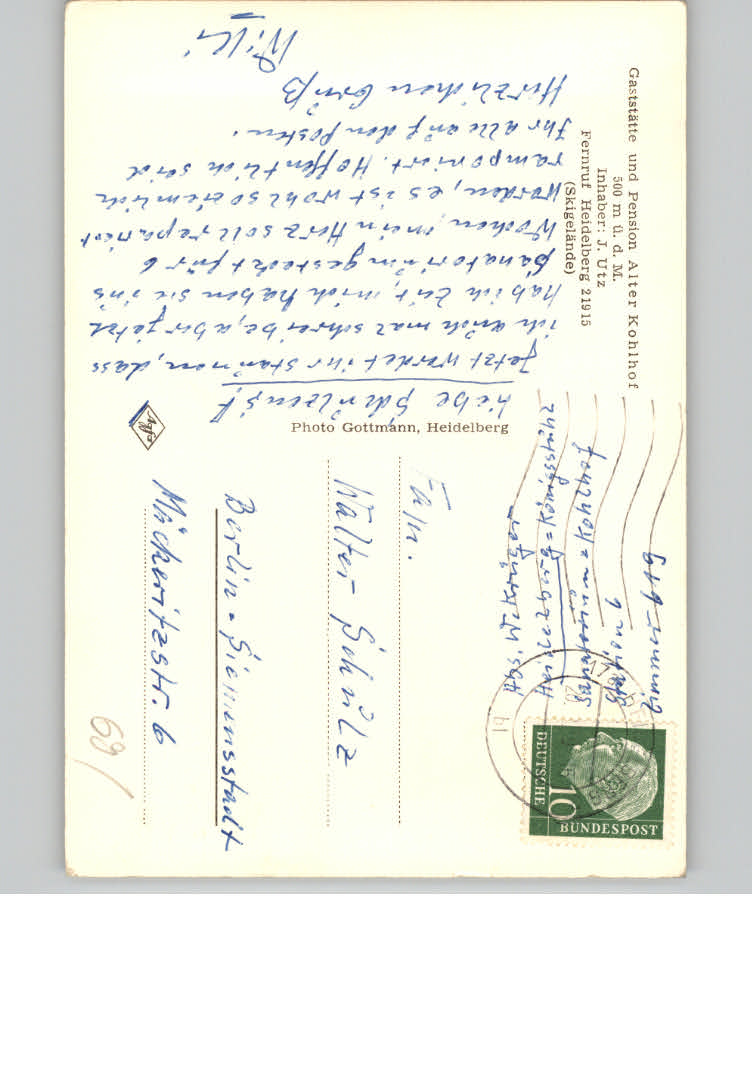 Gaststätte und Pension Alter Kohlhof
500 m ü. d. M.
Inhaber: J. Utz
Fernruf Heidelberg 21915
(Skigelände)
Photo Gottmann, Heidelberg
Agfa
Liebe Schulzens!
Jetzt werdet ihr staunen, dass
ich auch mal schreibe, aber jetzt
hab ich Zeit, mich haben sie ins
Sanatorium gesteckt für 6
Wochen, mein Herz soll repariert
werden, es ist wohl so ziemlich
ramponiert. Hoffentlich seid
Ihr alle auf dem Posten.
Herzlichen Gruß
Willi
Abs.
Heidelberg = Königsstuhl
Sanatorium = Kohlhof
Station 6
Zimmer 619
Fam.
Walter Schulz
Berlin = Siemensstadt
Mäckeritzstr. 6
69/
DEUTSCHE
BUNDESPOST
10